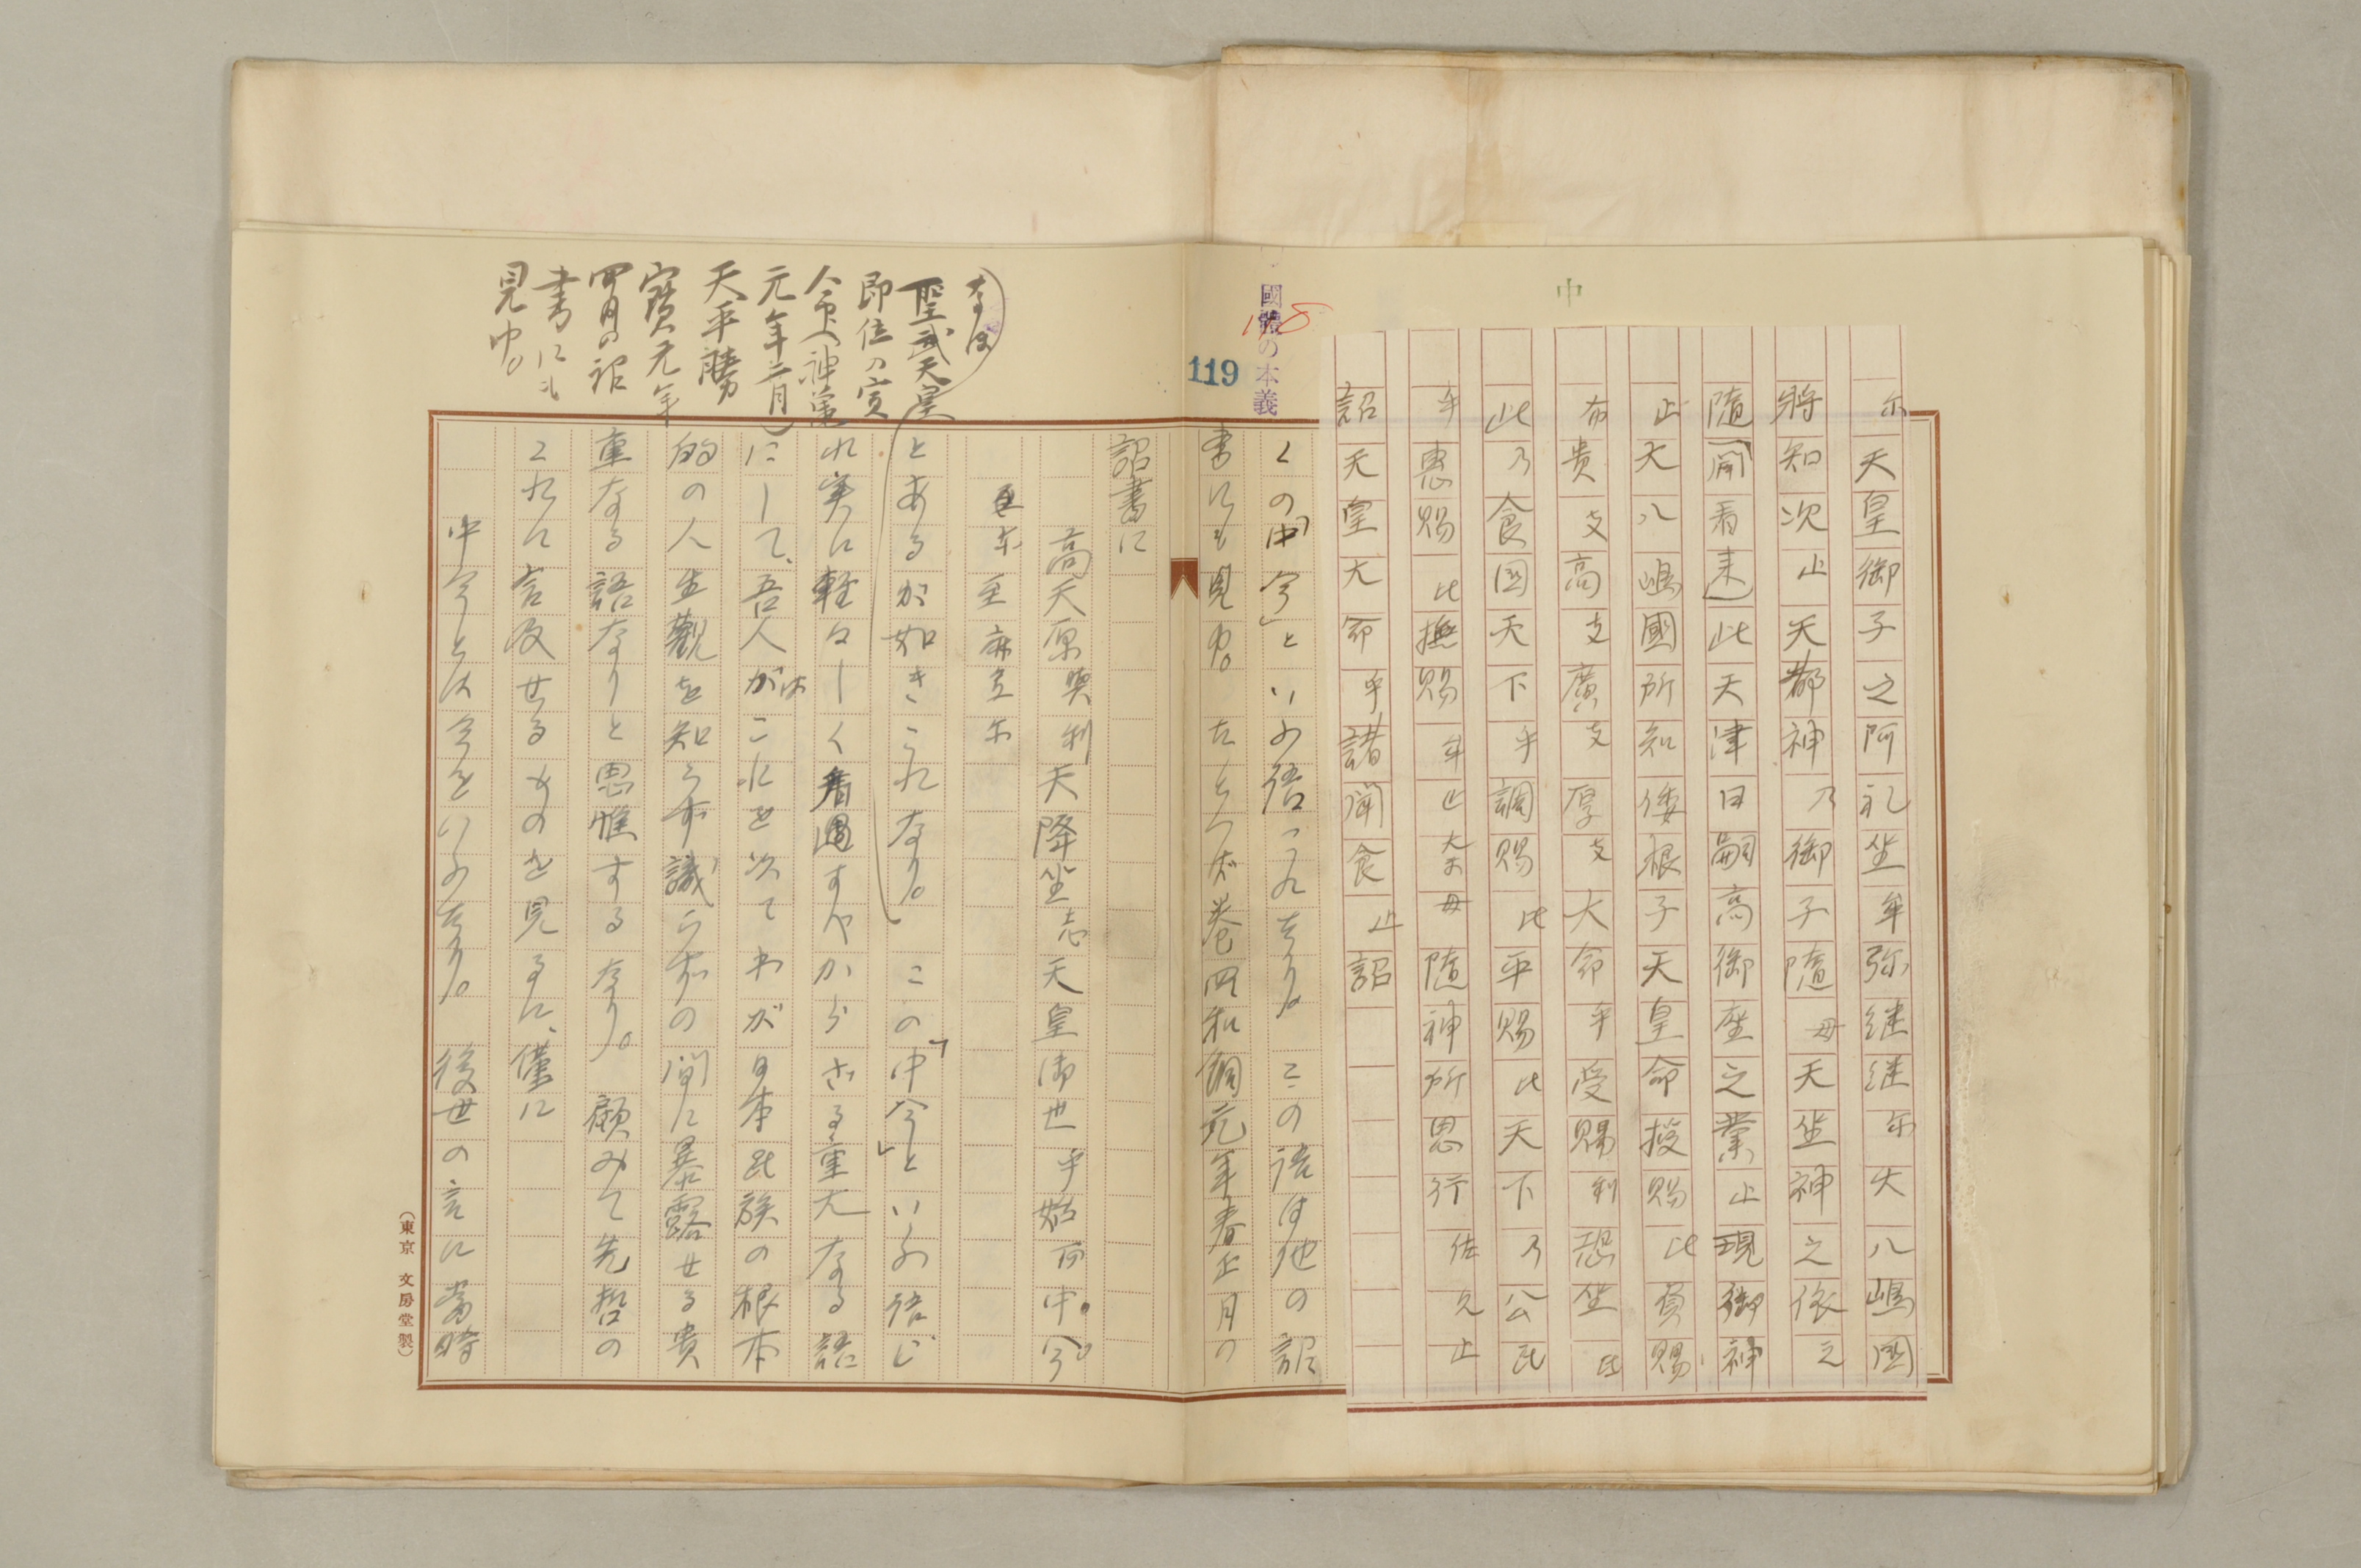 中
尓天皇御子之阿礼坐牟弥継継尓大八嶋国
将知次止天都神乃御子随母天坐神之依之
随聞看来此天津日嗣高御座之業止現御神
止大八嶋國所知倭根子天皇命授賜比負賜
布貴支高支廣支厚支大命乎受賜利恐坐弖
此乃食国天下乎調賜比平賜比天下乃公民
乎恵賜比撫賜牟止奈母随神所思行佐久止
詔天皇大命乎諸聞食止詔
國體の本義
119
くの「中今」といふ語これなり。この語は他の詔
書にも見ゆ。たとへば巻四和銅元年春正月の
詔書に
高天原與利天降坐志天皇御世乎始而中今
尓至麻弖尓
とあるが如きこれなり。この「中今」といふ語は
なほ
聖武天皇
即位の宣
命(神亀
元年二月)
天平勝
寶元年
四月の詔
書にも
見ゆ。
れ実に軽々しく看過すべからざる重大なる語
にして、吾人がこれを以てわが日本民族の根本
的の人生觀を知らず識らずの間に暴露せる貴
重なる語なりと思惟するなり。顧みて先哲の
これに言及せるものを見るに、僅に
中今とは今をいふなり。後世の言に當時
(東京 文房堂製)